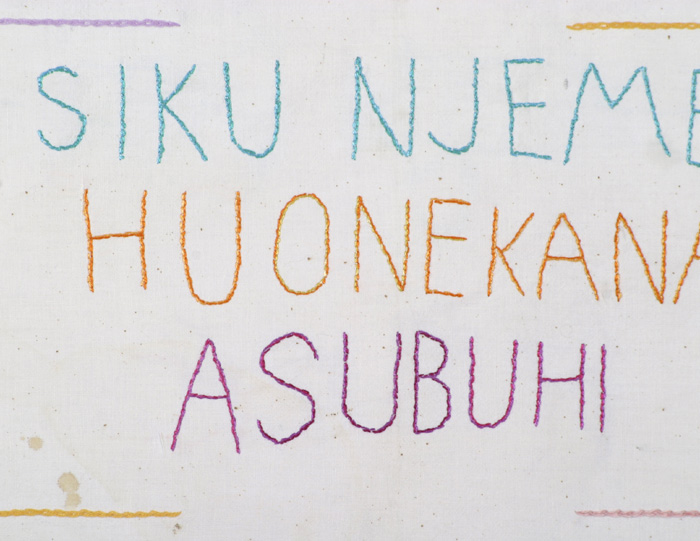 SIKU NJEME
HUONEKANA
ASUBUHI